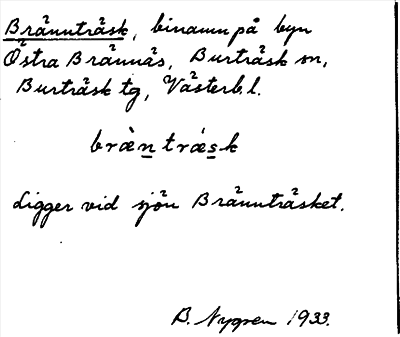 Brännträsk, binamn på byn
Östra Brännäs, Burträsk sn,
Burträsk tg, Västerb.l.
bräǹträ́sk
Ligger vid sjön Brännträsket.
B. Nygren 1933.